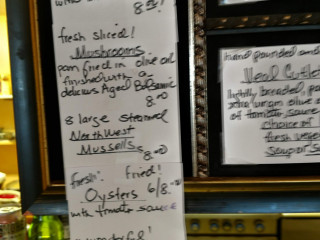 8.00!
fresh sliced!
Mushrooms
pan fried in olive oil
finished with a
delicious Aged Balsamic
8.00
8 large steamed
NorthWest
Mussells
8.00
fresh! fried!
Oysters 6/8.00
with tomato sauce
wonderful!
hand pounded
Veal Cutlet
lightly breaded, pan
xtra virgin olive o
of tomato, saute
choice of
fresh vege
Soup or S